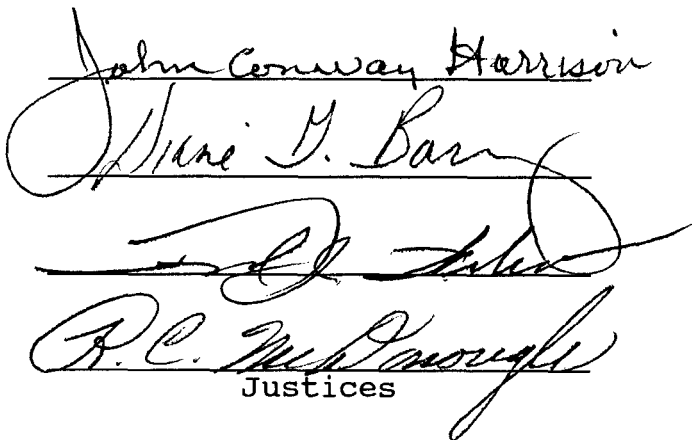 John Conway Harrison
Diane G. Barz
R. C. McDonough
Justices